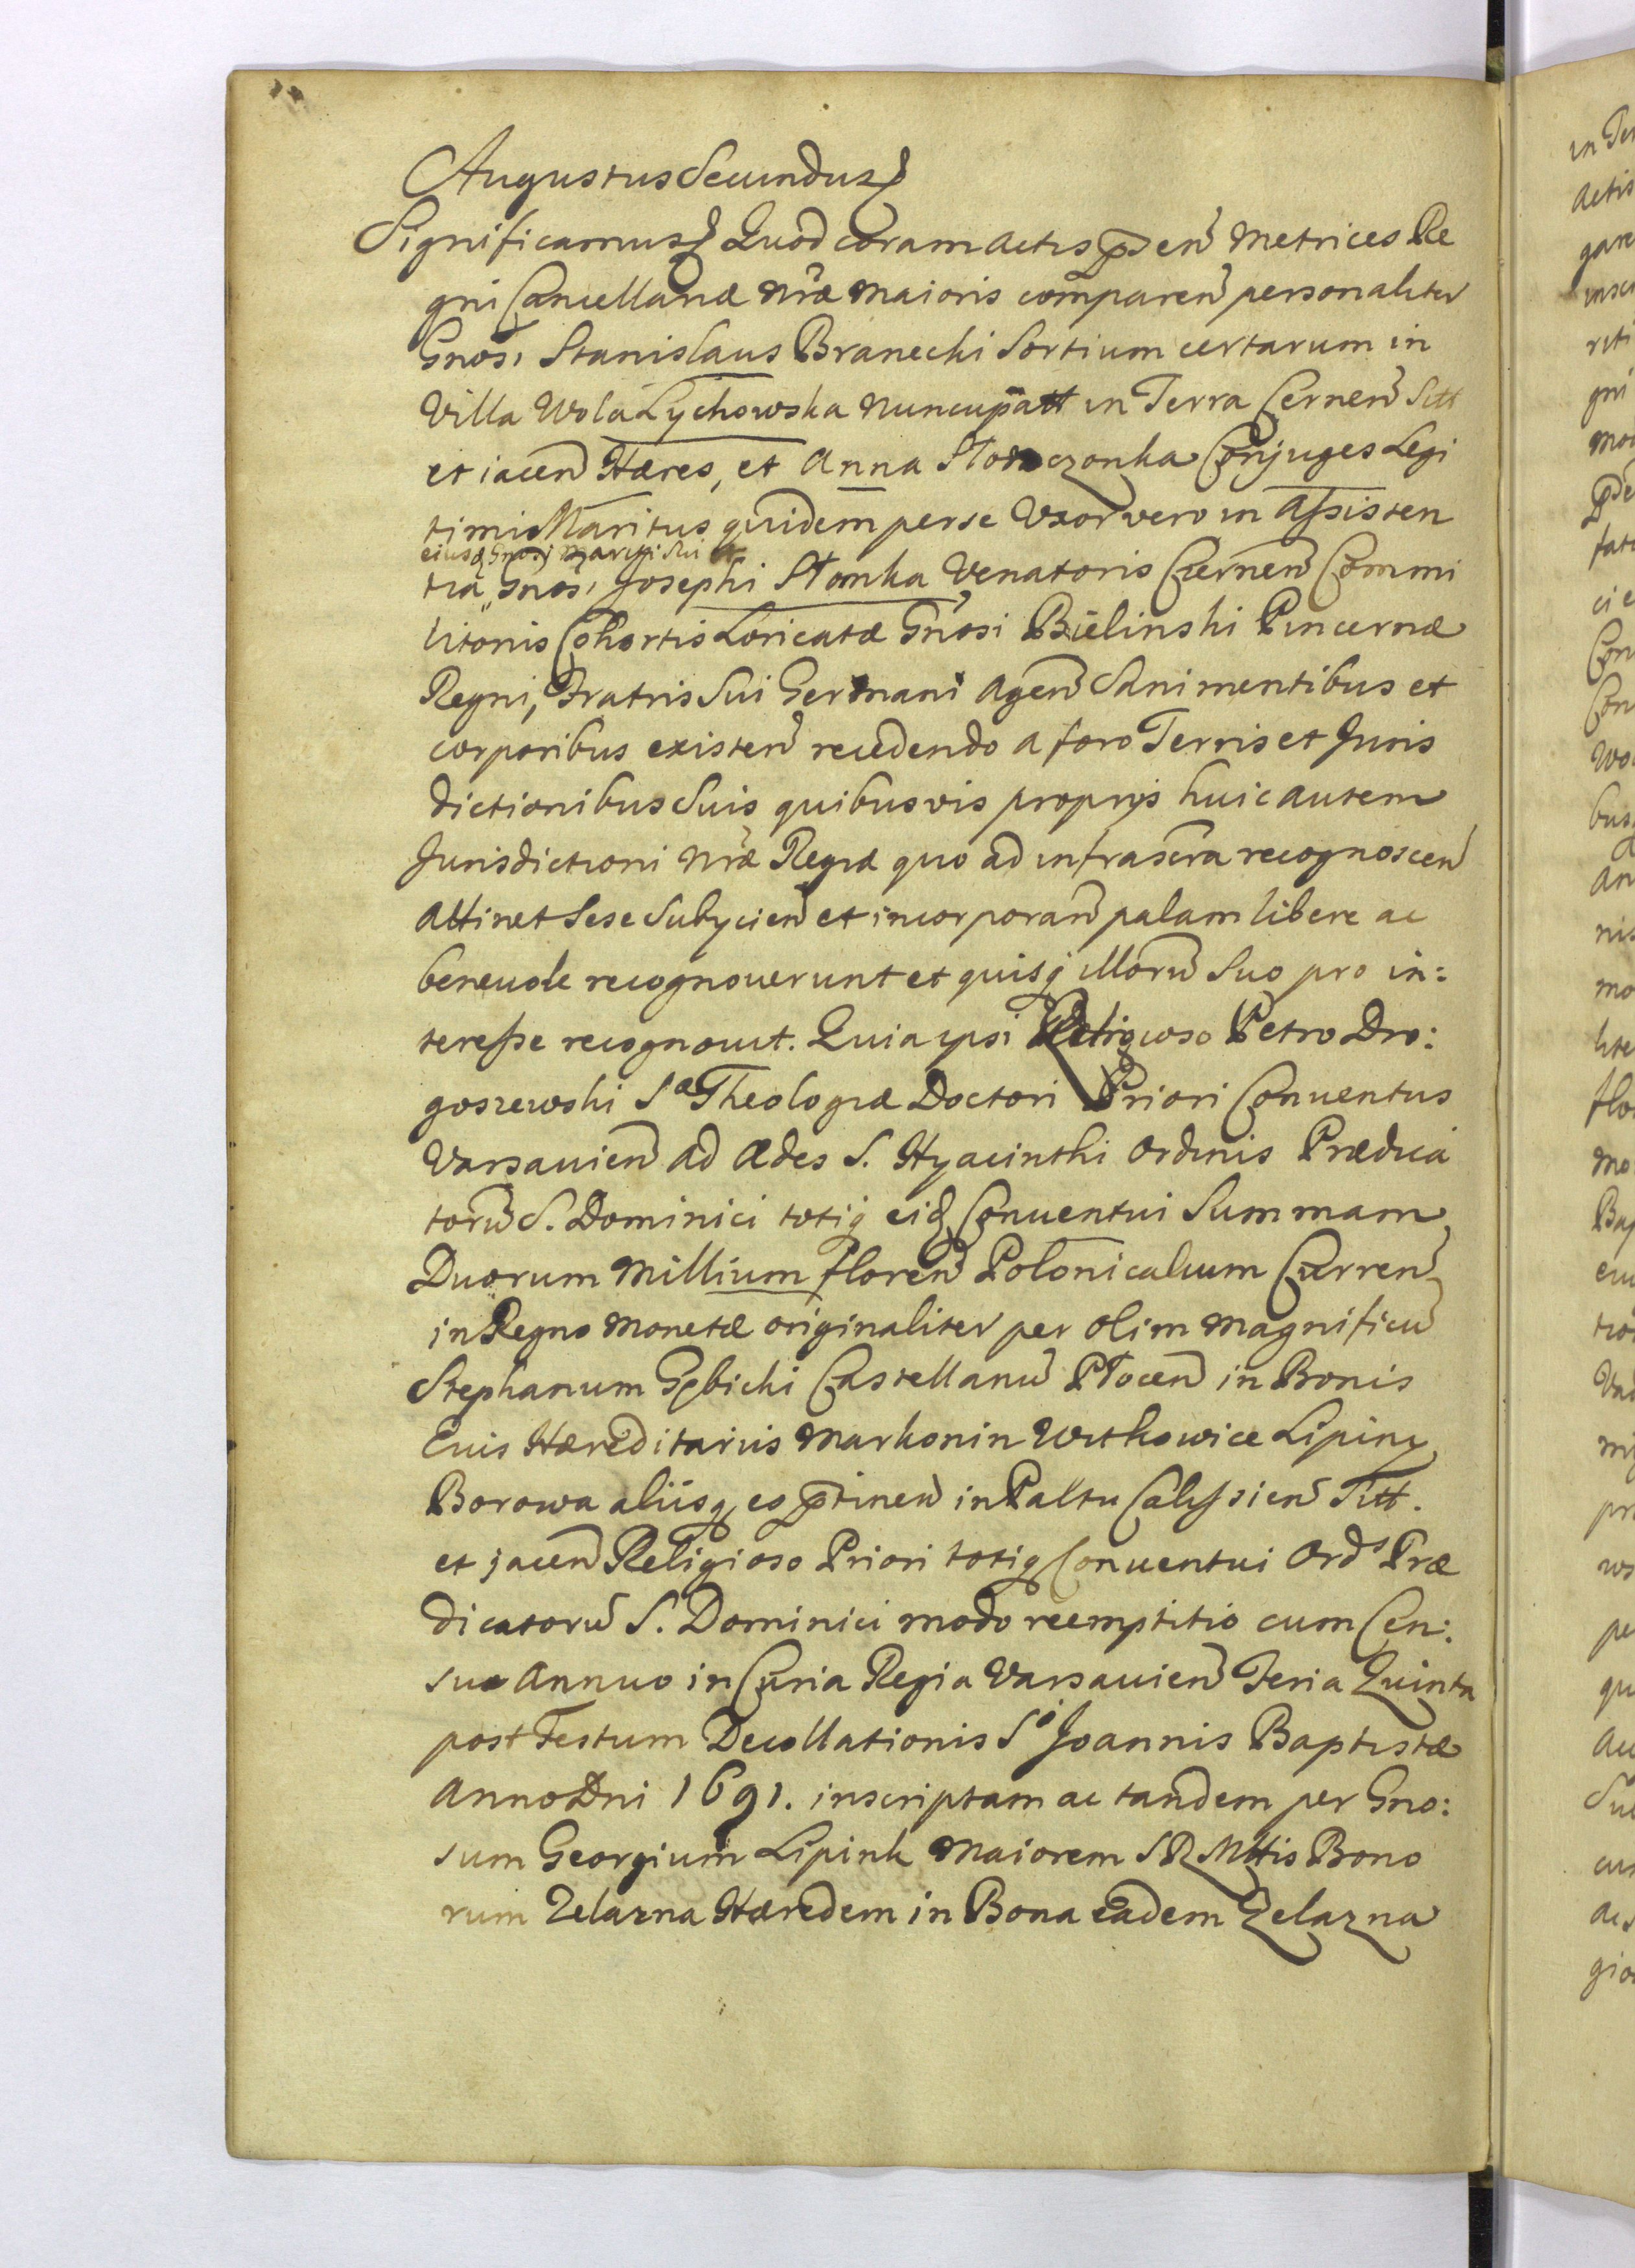 Augustus Secundus
Significamus Quod coram actis p̄sen̄ Metrices Re
gni Cancellariæ Nr̄æ Maioris comparen̄ personaliter
Gnōsi Stanislaus Branecki Sortium certarum in
Villa Wola Łychowska Nuncupatt in Terra Cernen̄ Sitt
et iacen̄ Hæres, et Anna Słomczonka Conjuges Legi
timi Maritus quidem per se Vxor vero in Assisten
eiusd Gnosi Mariti Sui et
tia Gnosi Josephi Słomka Venatoris Czernen̄ Commi
litonis Cohortis Loricatæ Gnōsi Bielinski Pincernæ
Regni, Fratris Sui Germani Agen̄ Sani mentibus et
corporibus existen̄ recedendo a foro Terris et Juris
dictionibus Suis quibusvis proprijs huic autem
Jurisdictioni Nr̄æ Regiæ quo ad infrascr̄a recognoscen̄
Attinet Sese Subijcien̄ et incorporan̄ palam libere ac
beneuole recognouerunt et quisq illorū Suo pro in:
teresse recognouit. Quia ipsi Religioso Petro Dro:
goszewski Sæ Theologiæ Doctori Priori Conuentus
Varsauien̄ ad Ædes S. Hyacinthi Ordinis Prædica
torū S. Dominici totiq eid Conuentui Summam
Duorum Millium floren̄ Polonicalium Curren̄
in Regno Monetæ originaliter per olim Magnificū
Stephanum Gębicki Castellanū Płocen̄ in Bonis
Suis Hæreditariis Markonin Witkowice Lipiny
Borowa aliisq eo p̄tinen̄ in Paltu Calissien̄ Sitt.
et jacen̄ Religioso Priori totiq Conuentui Ords Præ
dicatorū S. Dominici modo reemptitio cum Cen:
su Annuo in Curia Regia Varsauien̄ Feria Quinta
post Festum Decollationis Si Joannis Baptistæ
Anno Dni 1691. inscriptam ac tandem per Gno:
sum Georgium Lipink Maiorem S R Mttis Bono
rum Zelazna Hæredem in Bona eadem Zelazna